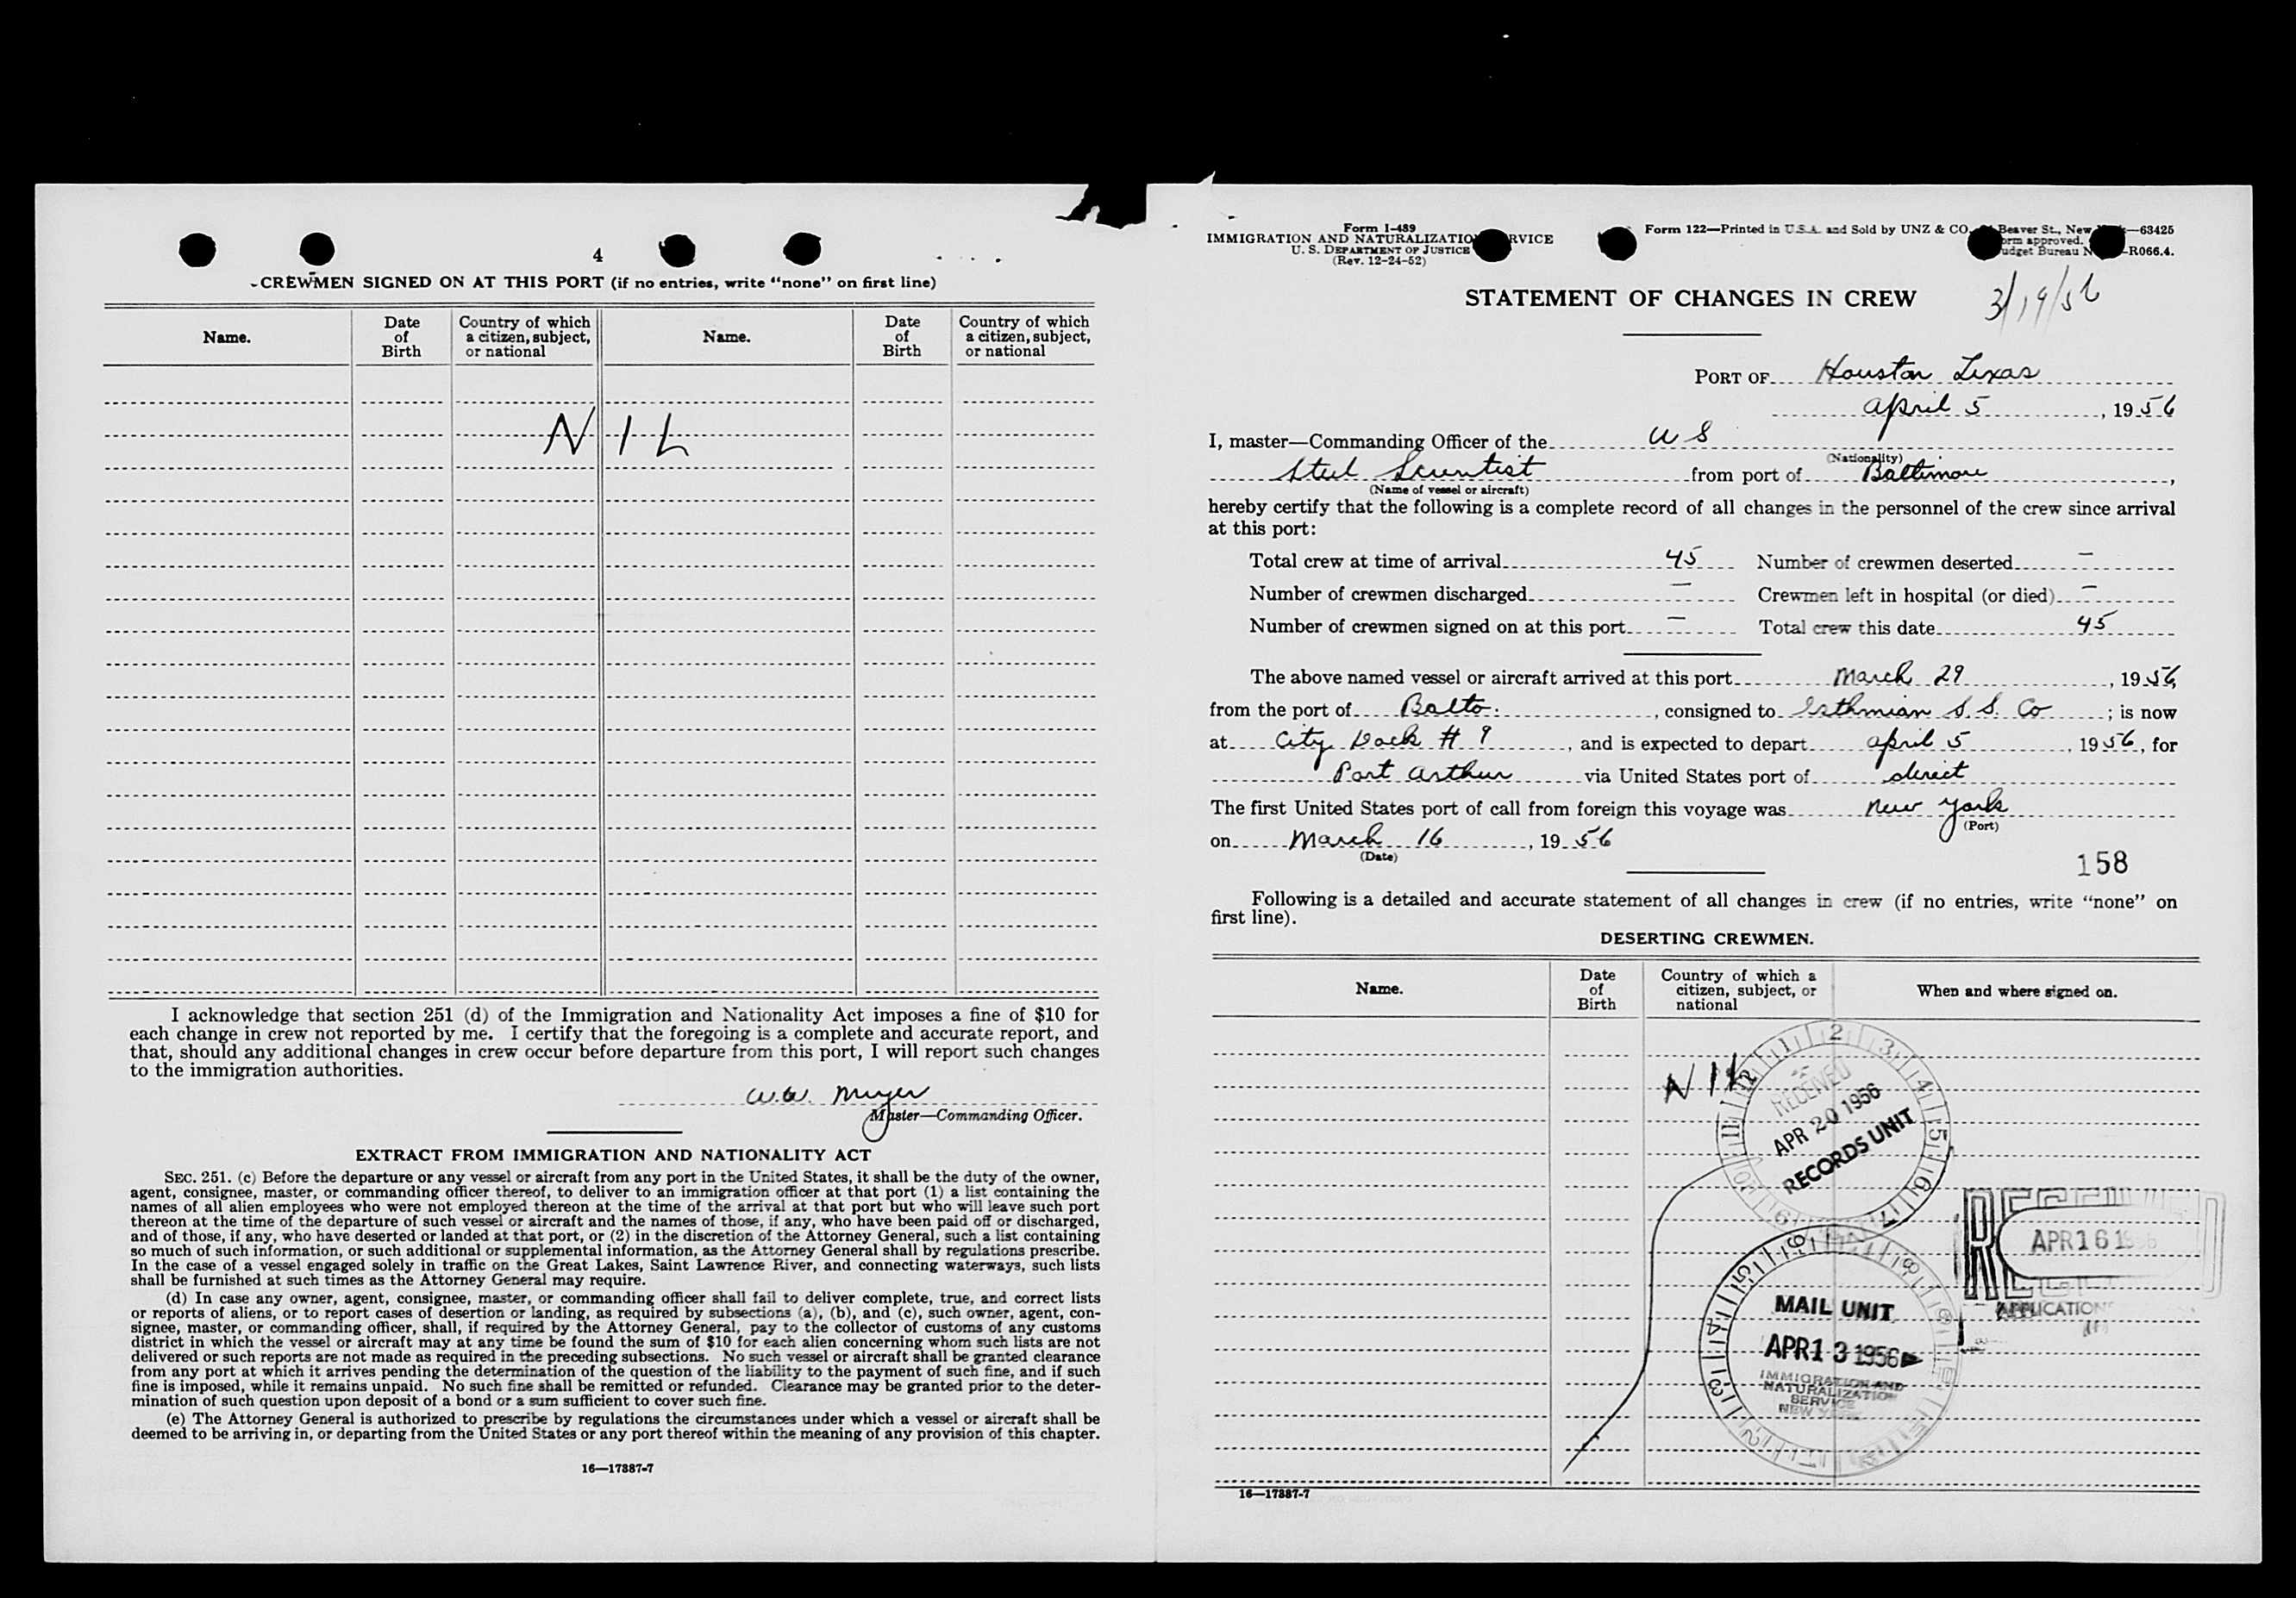 4
CREWMEN SIGNED ON AT THIS PORT (if no entries, write “none” on first line)
Name. Date of Birth Country of which a citizen, subject, or national Name. Date of Birth Country of which a citizen, subject, or national
NIL
I acknowledge that section 251 (d) of the Immigration and Nationality Act imposes a fine of $10 for
each change in crew not reported by me. I certify that the foregoing is a complete and accurate report, and
that, should any additional changes in crew occur before departure from this port, I will report such changes
to the immigration authorities.
W.W. Meyer
Master—Commanding Officer.
EXTRACT FROM IMMIGRATION AND NATIONALITY ACT
SEC. 251. (c) Before the departure or any vessel or aircraft from any port in the United States, it shall be the duty of the owner,
agent, consignee, master, or commanding officer thereof, to deliver to an immigration officer at that port (1) a list containing the
names of all alien employees who were not employed thereon at the time of the arrival at that port but who will leave such port
thereon at the time of the departure of such vessel or aircraft and the names of those, if any, who have been paid off or discharged,
and of those, if any, who have deserted or landed at that port, or (2) in the discretion of the Attorney General, such a list containing
so much of such information, or such additional or supplemental information, as the Attorney General shall by regulations prescribe.
In the case of a vessel engaged solely in traffic on the Great Lakes, Saint Lawrence River, and connecting waterways, such lists
shall be furnished at such times as the Attorney General may require.
(d) In case any owner, agent, consignee, master, or commanding officer shall fail to deliver complete, true, and correct lists
or reports of aliens, or to report cases of desertion or landing, as required by subsections (a), (b), and (c), such owner, agent, con-
signee, master, or commanding officer, shall, if required by the Attorney General, pay to the collector of customs of any customs
district in which the vessel or aircraft may at any time be found the sum of $10 for each alien concerning whom such lists are not
delivered or such reports are not made as required in the preceding subsections. No such vessel or aircraft shall be granted clearance
from any port at which it arrives pending the determination of the question of the liability to the payment of such fine, and if such
fine is imposed, while it remains unpaid. No such fine shall be remitted or refunded. Clearance may be granted prior to the deter-
mination of such question upon deposit of a bond or a sum sufficient to cover such fine.
(e) The Attorney General is authorized to prescribe by regulations the circumstances under which a vessel or aircraft shall be
deemed to be arriving in, or departing from the United States or any port thereof within the meaning of any provision of this chapter.
16—17887-7
Form I-489
IMMIGRATION AND NATURALIZATION SERVICE
U. S. DEPARTMENT OF JUSTICE
(Rev. 12-24-52)
Form 122—Printed in U.S.A. and Sold by UNZ & CO. Beaver St., New —63425
orm approved.
udget Bureau N -R066.4.
STATEMENT OF CHANGES IN CREW
3/19/56
PORT OF Houston Texas
April 5, 1956
I, master—Commanding Officer of the U S
(Nationality)
Steel Scientist from port of Baltimore,
(Name of vessel or aircraft)
hereby certify that the following is a complete record of all changes in the personnel of the crew since arrival
at this port:
Total crew at time of arrival 45 Number of crewmen deserted —
Number of crewmen discharged — Crewmen left in hospital (or died) —
Number of crewmen signed on at this port — Total crew this date 45
The above named vessel or aircraft arrived at this port March 29, 1956
from the port of Balto., consigned to Isthmian S.S. Co; is now
at City Dock # 9, and is expected to depart April 5, 1956, for
Port Arthur via United States port of direct
The first United States port of call from foreign this voyage was New York
(Port)
on March 16, 1956
(Date)
158
Following is a detailed and accurate statement of all changes in crew (if no entries, write “none” on
first line).
DESERTING CREWMEN.
Name. Date of Birth Country of which a citizen, subject, or national When and where signed on.
NIL
RECEIVED
APR 20 1956
RECORDS UNIT
RECEIVED
APR 16 1956
APPLICATION
MAIL UNIT
APR 13 1956
IMMIGRATION AND
NATURALIZATION
SERVICE
NEW YORK
16—17887-7